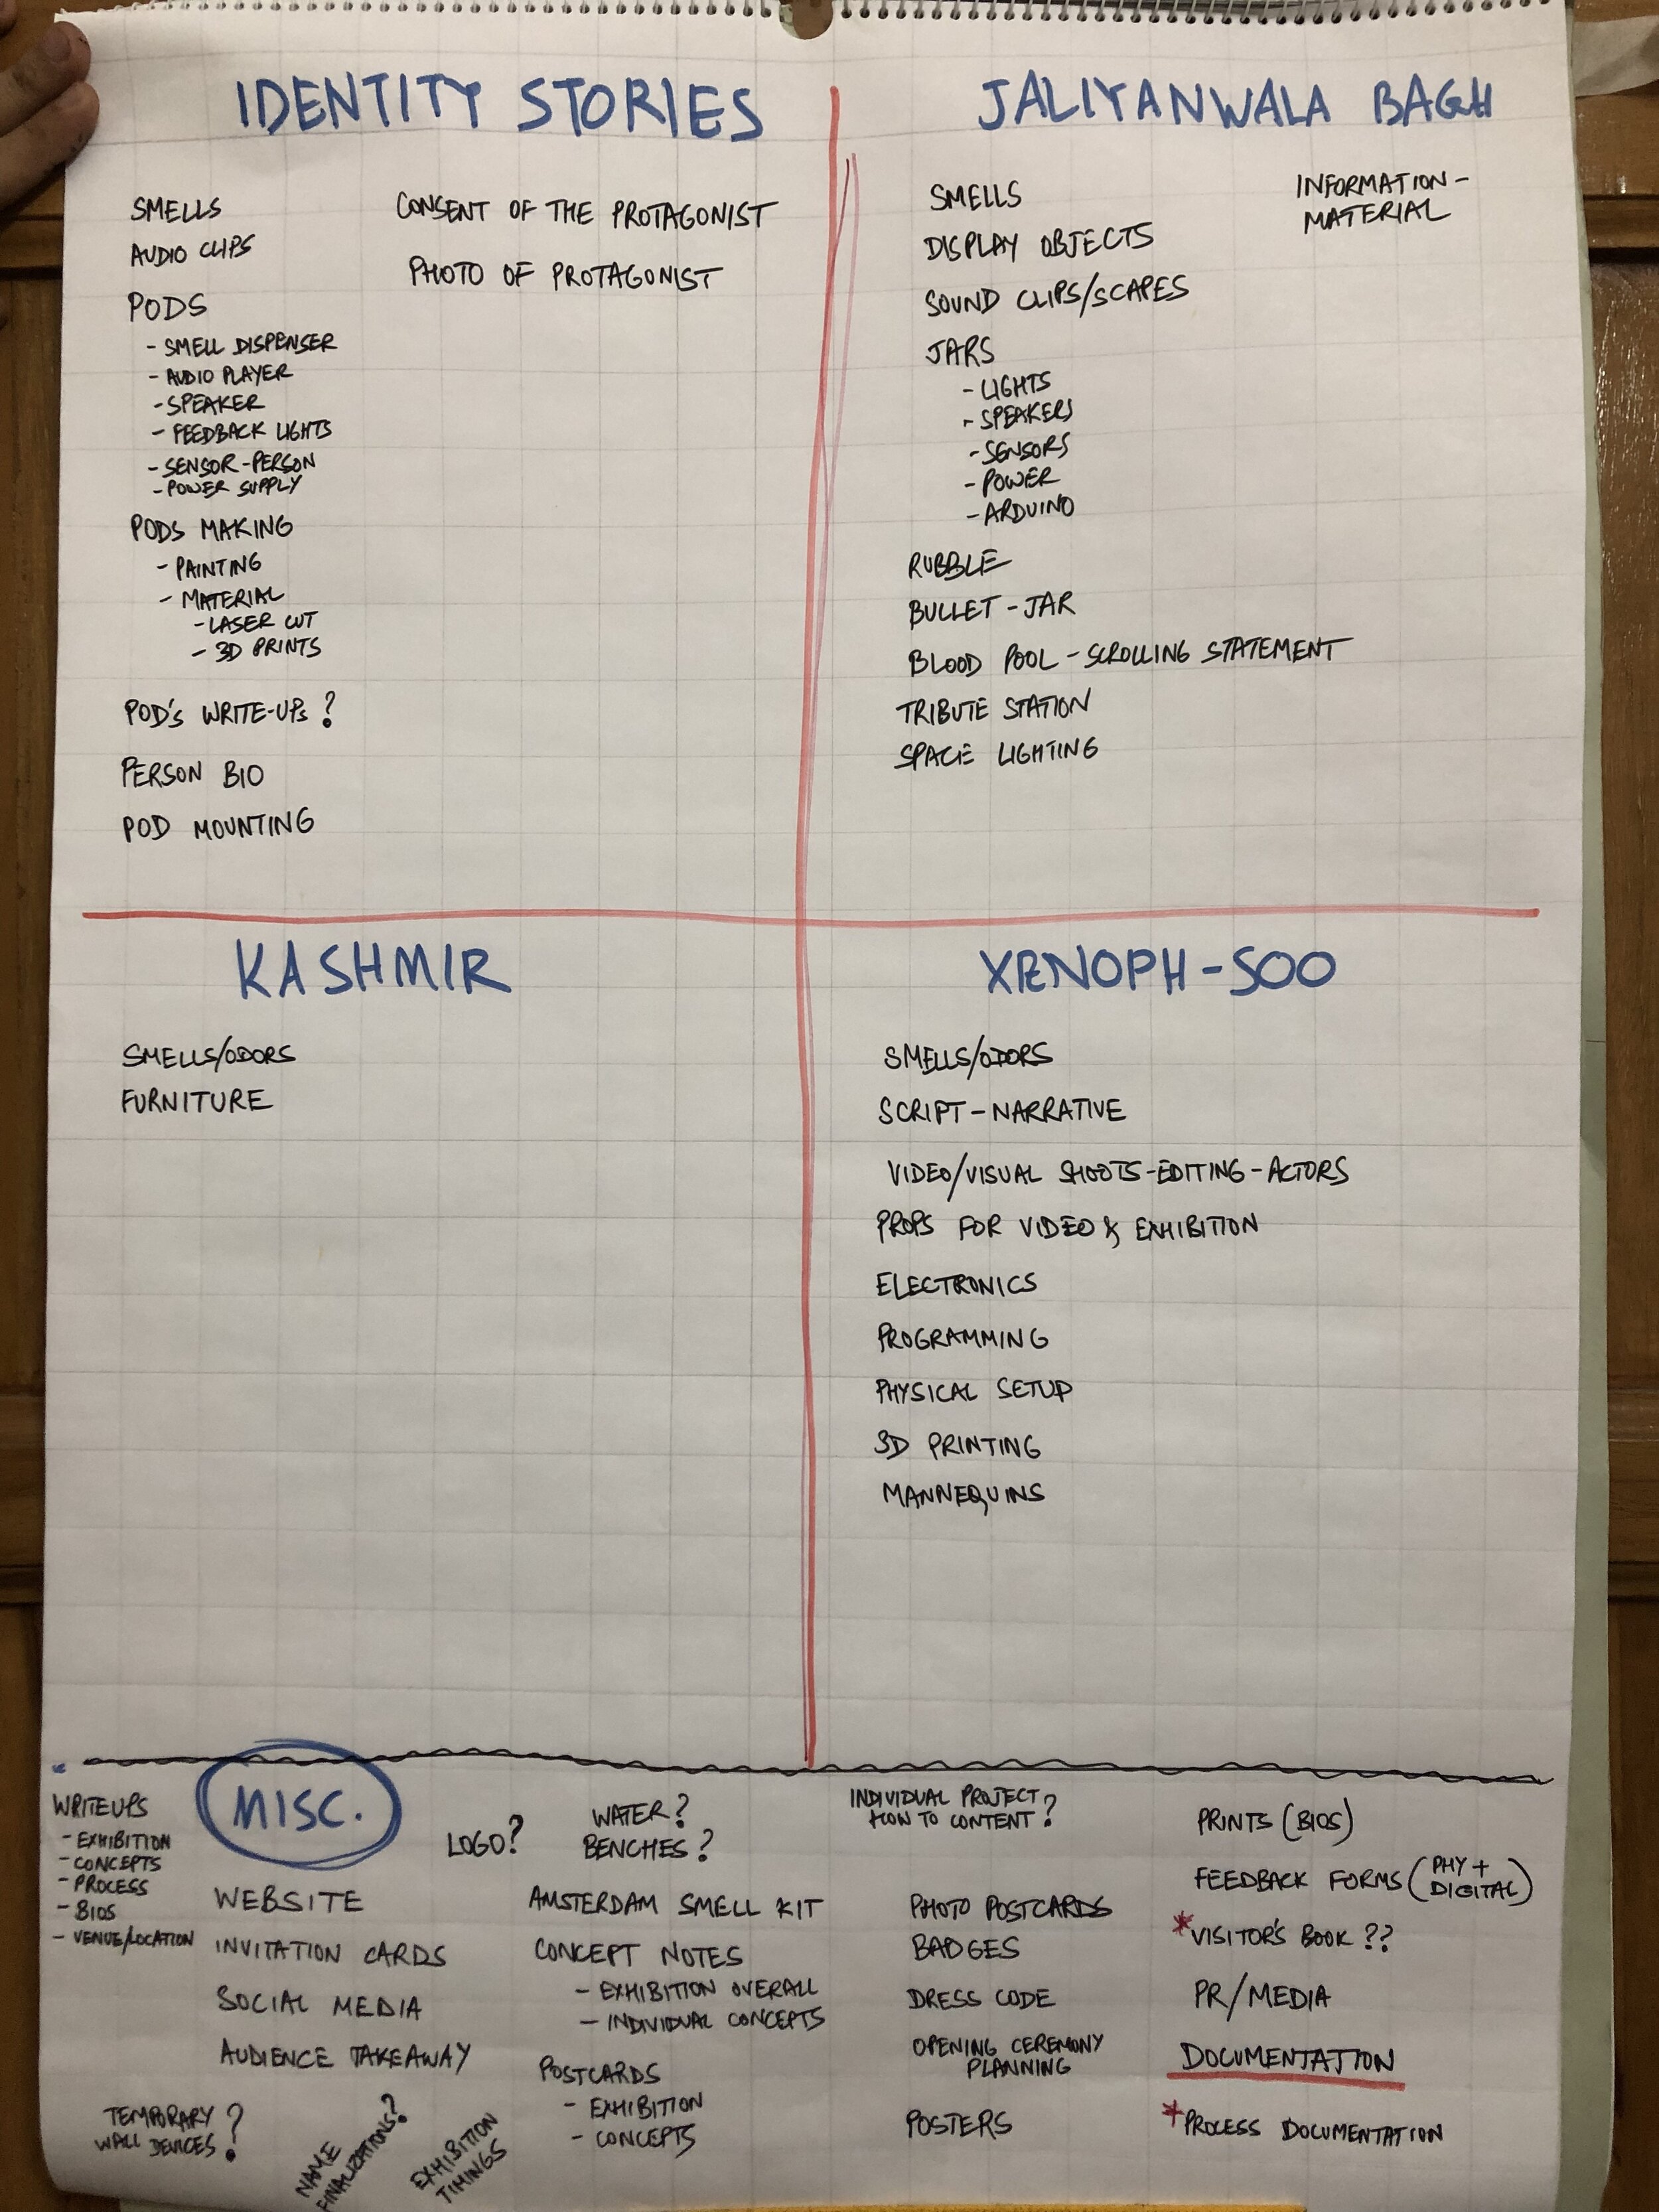 IDENTITY STORIES
SMELLS
AUDIO CLIPS
PODS
- SMELL DISPENSER
- AUDIO PLAYER
- SPEAKER
- FEEDBACK LIGHTS
- SENSOR-PERSON
- POWER SUPPLY
PODS MAKING
- PAINTING
- MATERIAL
- LASER CUT
- 3D PRINTS
POD'S WRITE-UPS ?
PERSON BIO
POD MOUNTING
CONSENT OF THE PROTAGONIST
PHOTO OF PROTAGONIST
JALIYANWALA BAGH
SMELLS
DISPLAY OBJECTS
SOUND CLIPS/SCAPES
JARS
- LIGHTS
- SPEAKERS
- SENSORS
- POWER
- ARDUINO
RUBBLE
BULLET - JAR
BLOOD POOL - SCROLLING STATEMENT
TRIBUTE STATION
SPACE LIGHTING
INFORMATION -
MATERIAL
KASHMIR
SMELLS/ODORS
FURNITURE
XENOPH - 500
SMELLS/ODORS
SCRIPT - NARRATIVE
VIDEO/VISUAL SHOOTS-EDITING-ACTORS
PROPS FOR VIDEO & EXHIBITION
ELECTRONICS
PROGRAMMING
PHYSICAL SETUP
3D PRINTING
MANNEQUINS
MISC.
WRITEUPS
- EXHIBITION
- CONCEPTS
- PROCESS
- BIOS
- VENUE/LOCATION
WEBSITE
INVITATION CARDS
SOCIAL MEDIA
AUDIENCE TAKEAWAY
TEMPORARY
WALL DEVICES?
NAME
FINALIZATIONS?
EXHIBITION
TIMINGS
LOGO?
WATER?
BENCHES?
AMSTERDAM SMELL KIT
CONCEPT NOTES
- EXHIBITION OVERALL
- INDIVIDUAL CONCEPTS
POSTCARDS
- EXHIBITION
- CONCEPTS
INDIVIDUAL PROJECT
HOW TO CONTENT?
PHOTO POSTCARDS
BADGES
DRESS CODE
OPENING CEREMONY
PLANNING
POSTERS
PRINTS (BIOS)
FEEDBACK FORMS (PHY + DIGITAL)
*VISITOR'S BOOK ??
PR/MEDIA
DOCUMENTATION
*PROCESS DOCUMENTATION